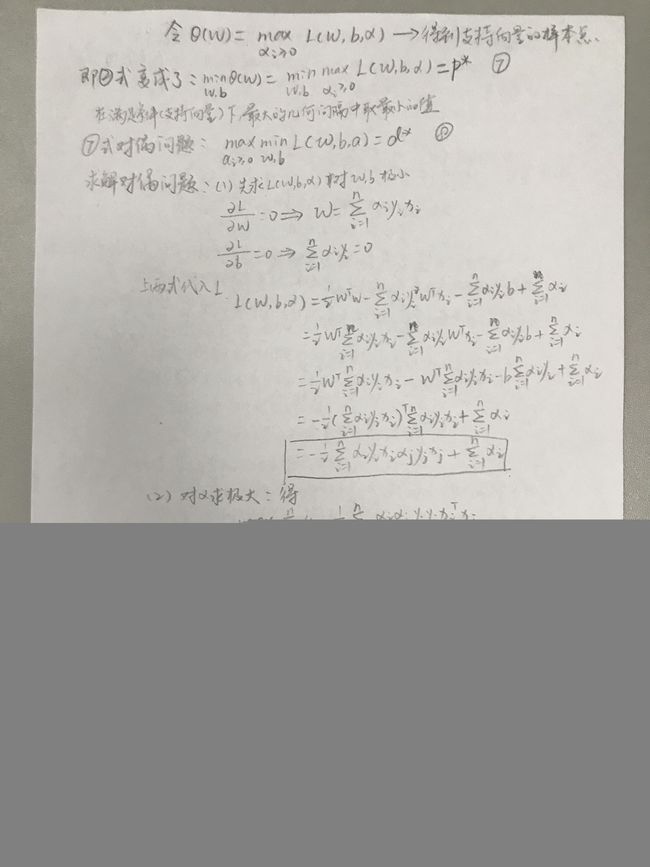 令 θ(w) = max L(w,b,α) → 得到支持向量的样本点.
αi≥0
即 式变成了: min θ(w) = min max L(w,b,α) = p* ⑦
w,b w,b αi≥0
在满足条件(支持向量)下最大的几何间隔中取最小的值
⑦式对偶问题: max min L(w,b,α) = d* ⑧
αi≥0 w,b
求解对偶问题: (1) 先求L(w,b,α) 对w,b极小
∂L/∂w = 0 ⇒ w = Σ_{i=1}^{n} αi yi xi
∂L/∂b = 0 ⇒ Σ_{i=1}^{n} αi yi = 0
上两式代入L L(w,b,α) = ½ wᵀw - Σ_{i=1}^{n} αi yi wᵀxi - Σ_{i=1}^{n} αi yi b + Σ_{i=1}^{n} αi
= ½ wᵀ Σ_{i=1}^{n} αi yi xi - Σ_{i=1}^{n} αi yi wᵀxi - Σ_{i=1}^{n} αi yi b + Σ_{i=1}^{n} αi
= ½ wᵀ Σ_{i=1}^{n} αi yi xi - wᵀ Σ_{i=1}^{n} αi yi xi - b Σ_{i=1}^{n} αi yi + Σ_{i=1}^{n} αi
= -½ (Σ_{i=1}^{n} αi yi xi)ᵀ Σ_{i=1}^{n} αi yi xi + Σ_{i=1}^{n} αi
= -½ Σ_{i=1}^{n} αi yi xi αj yj xj + Σ_{i=1}^{n} αi
(2) 对α求极大: 得